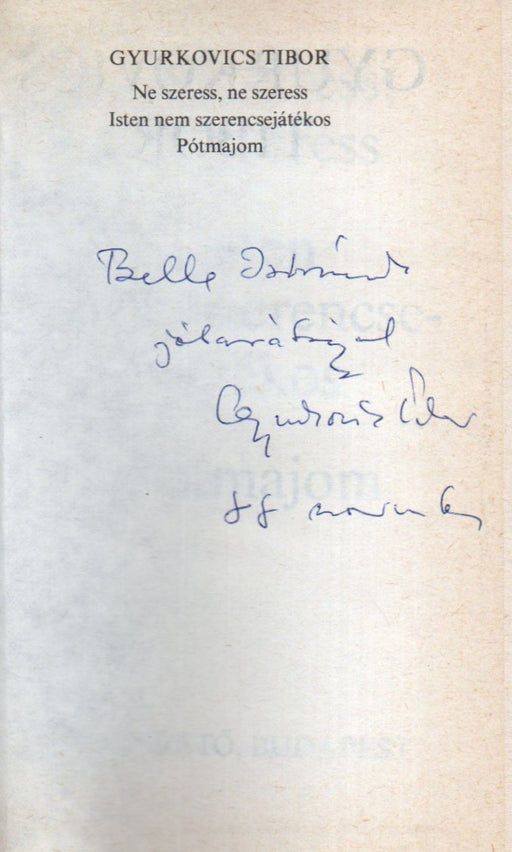 GYURKOVICS TIBOR
Ne szeress, ne szeress
Isten nem szerencsejátékos
Pótmajom
Bella Istvánnak
jóbarátsággal
Gyurkovics Tibor
88 november